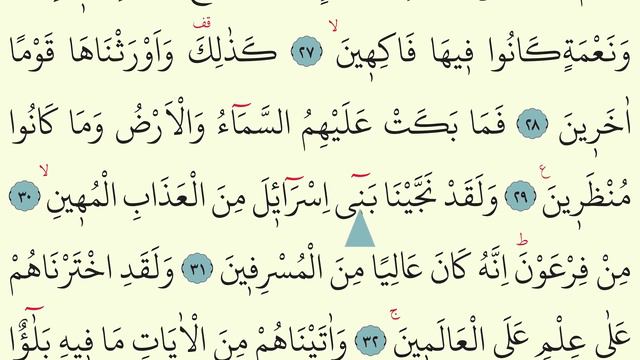 وَنَعْمَةٍ كَانُوا فِيهَا فَاكِهِينَ ۙ ﴿٢٧﴾ كَذٰلِكَ ۠ وَاَوْرَثْنَاهَا قَوْمًا
اٰخَرِينَ ﴿٢٨﴾ فَمَا بَكَتْ عَلَيْهِمُ السَّمَٓاءُ وَالْاَرْضُ وَمَا كَانُوا
مُنْظَرِينَ ع ﴿٢٩﴾ وَلَقَدْ نَجَّيْنَا بَنٓى اِسْرَٓائِلَ مِنَ الْعَذَابِ الْمُهِينِ ۙ ﴿٣٠﴾
مِنْ فِرْعَوْنَ ۜ اِنَّهُ كَانَ عَالِيًا مِنَ الْمُسْرِفِينَ ﴿٣١﴾ وَلَقَدِ اخْتَرْنَاهُمْ
عَلٰى عِلْمٍ عَلَى الْعَالَمِينَ ۚ ﴿٣٢﴾ وَاٰتَيْنَاهُمْ مِنَ الْاٰيَاتِ مَا فِيهِ بَلٰٓؤٌا